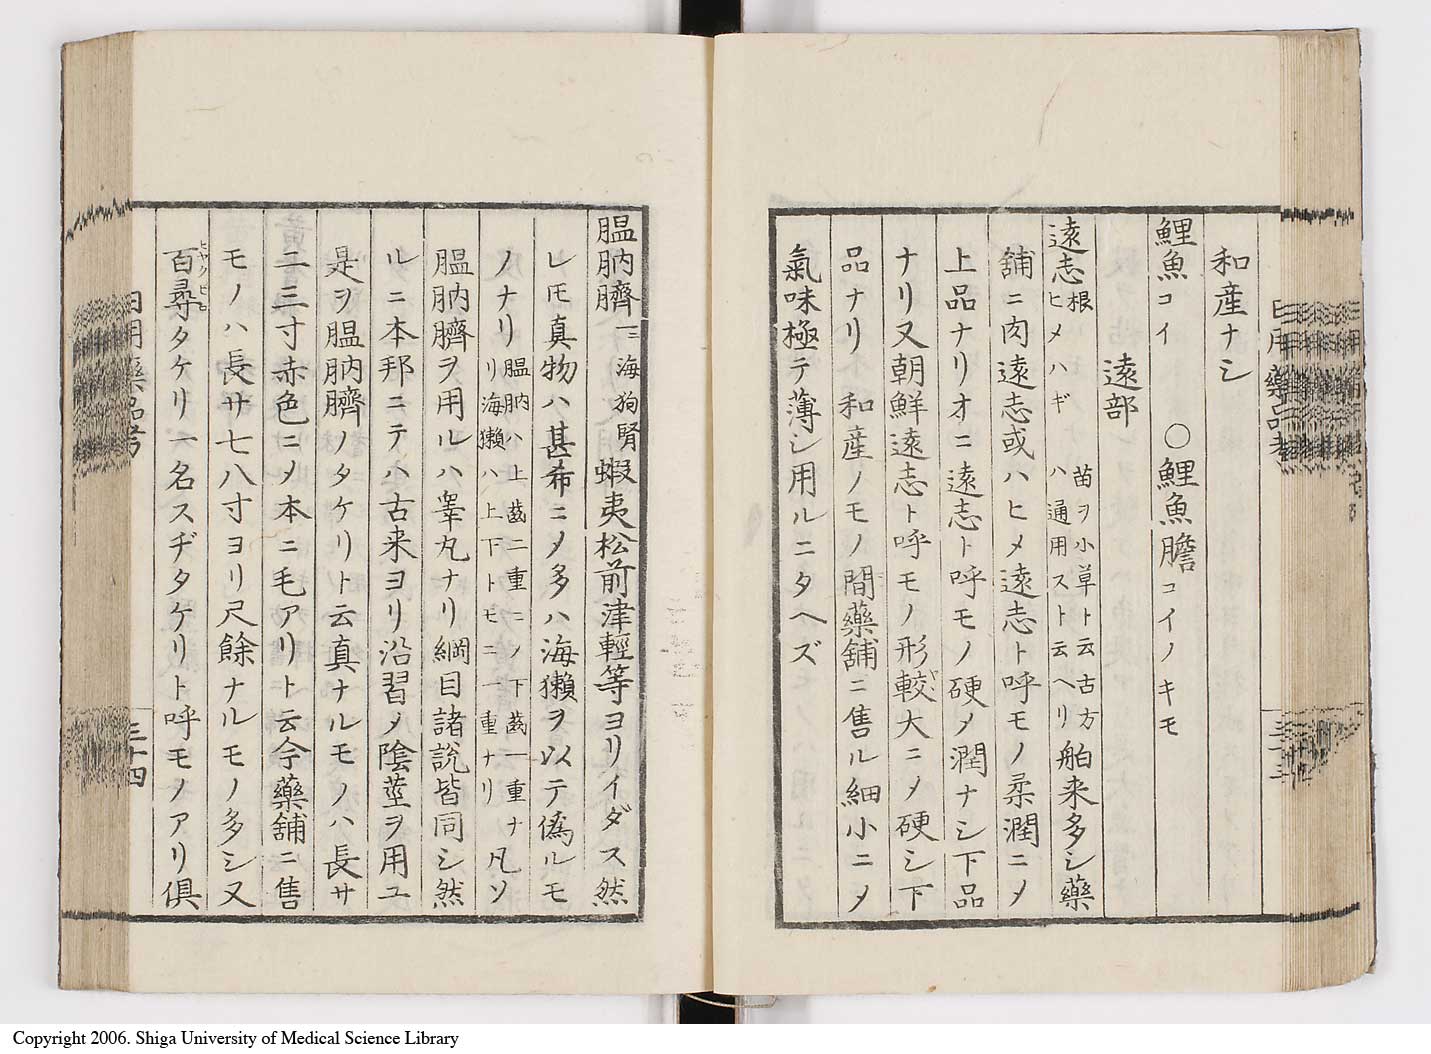 和産ナシ
鯉魚コイ　○鯉魚膽コイノキモ
遠部
遠志根ヒメハギ　苗ヲ小草ト云古方ハ通用スト云ヘリ舶来多シ藥
舗ニ肉遠志或ハヒメ遠志ト呼モノ柔潤ニメ
上品ナリオニ遠志ト呼モノ硬メ潤ナシ下品
ナリ又朝鮮遠志ト呼モノ形較大ニメ硬シ下
品ナリ和産ノモノ間藥舗ニ售ル細小ニメ
氣味極テ薄シ用ルニタヘズ
膃肭臍一ニ海狗腎蝦夷松前津輕等ヨリイダス然
レ𪜈真物ハ甚希ニメ多ハ海獺ヲ以テ偽ルモ
ノナリ膃肭ハ上齒二重ニノ下齒一重ナリ海獺ハ上下トモニ一重ナリ凡ソ
膃肭臍ヲ用ルハ睾丸ナリ綱目諸說皆同シ然
ルニ本邦ニテハ古来ヨリ沿習メ陰莖ヲ用ユ
是ヲ膃肭臍ノタケリト云真ナルモノハ長サ
二三寸赤色ニメ本ニ毛アリト云今藥舗ニ售
モノハ長サ七八寸ヨリ尺餘ナルモノ多シ又
百尋ヒヤクヒロタケリ一名スヂタケリト呼モノアリ俱
日用藥品考
三十四
Copyright 2006. Shiga University of Medical Science Library